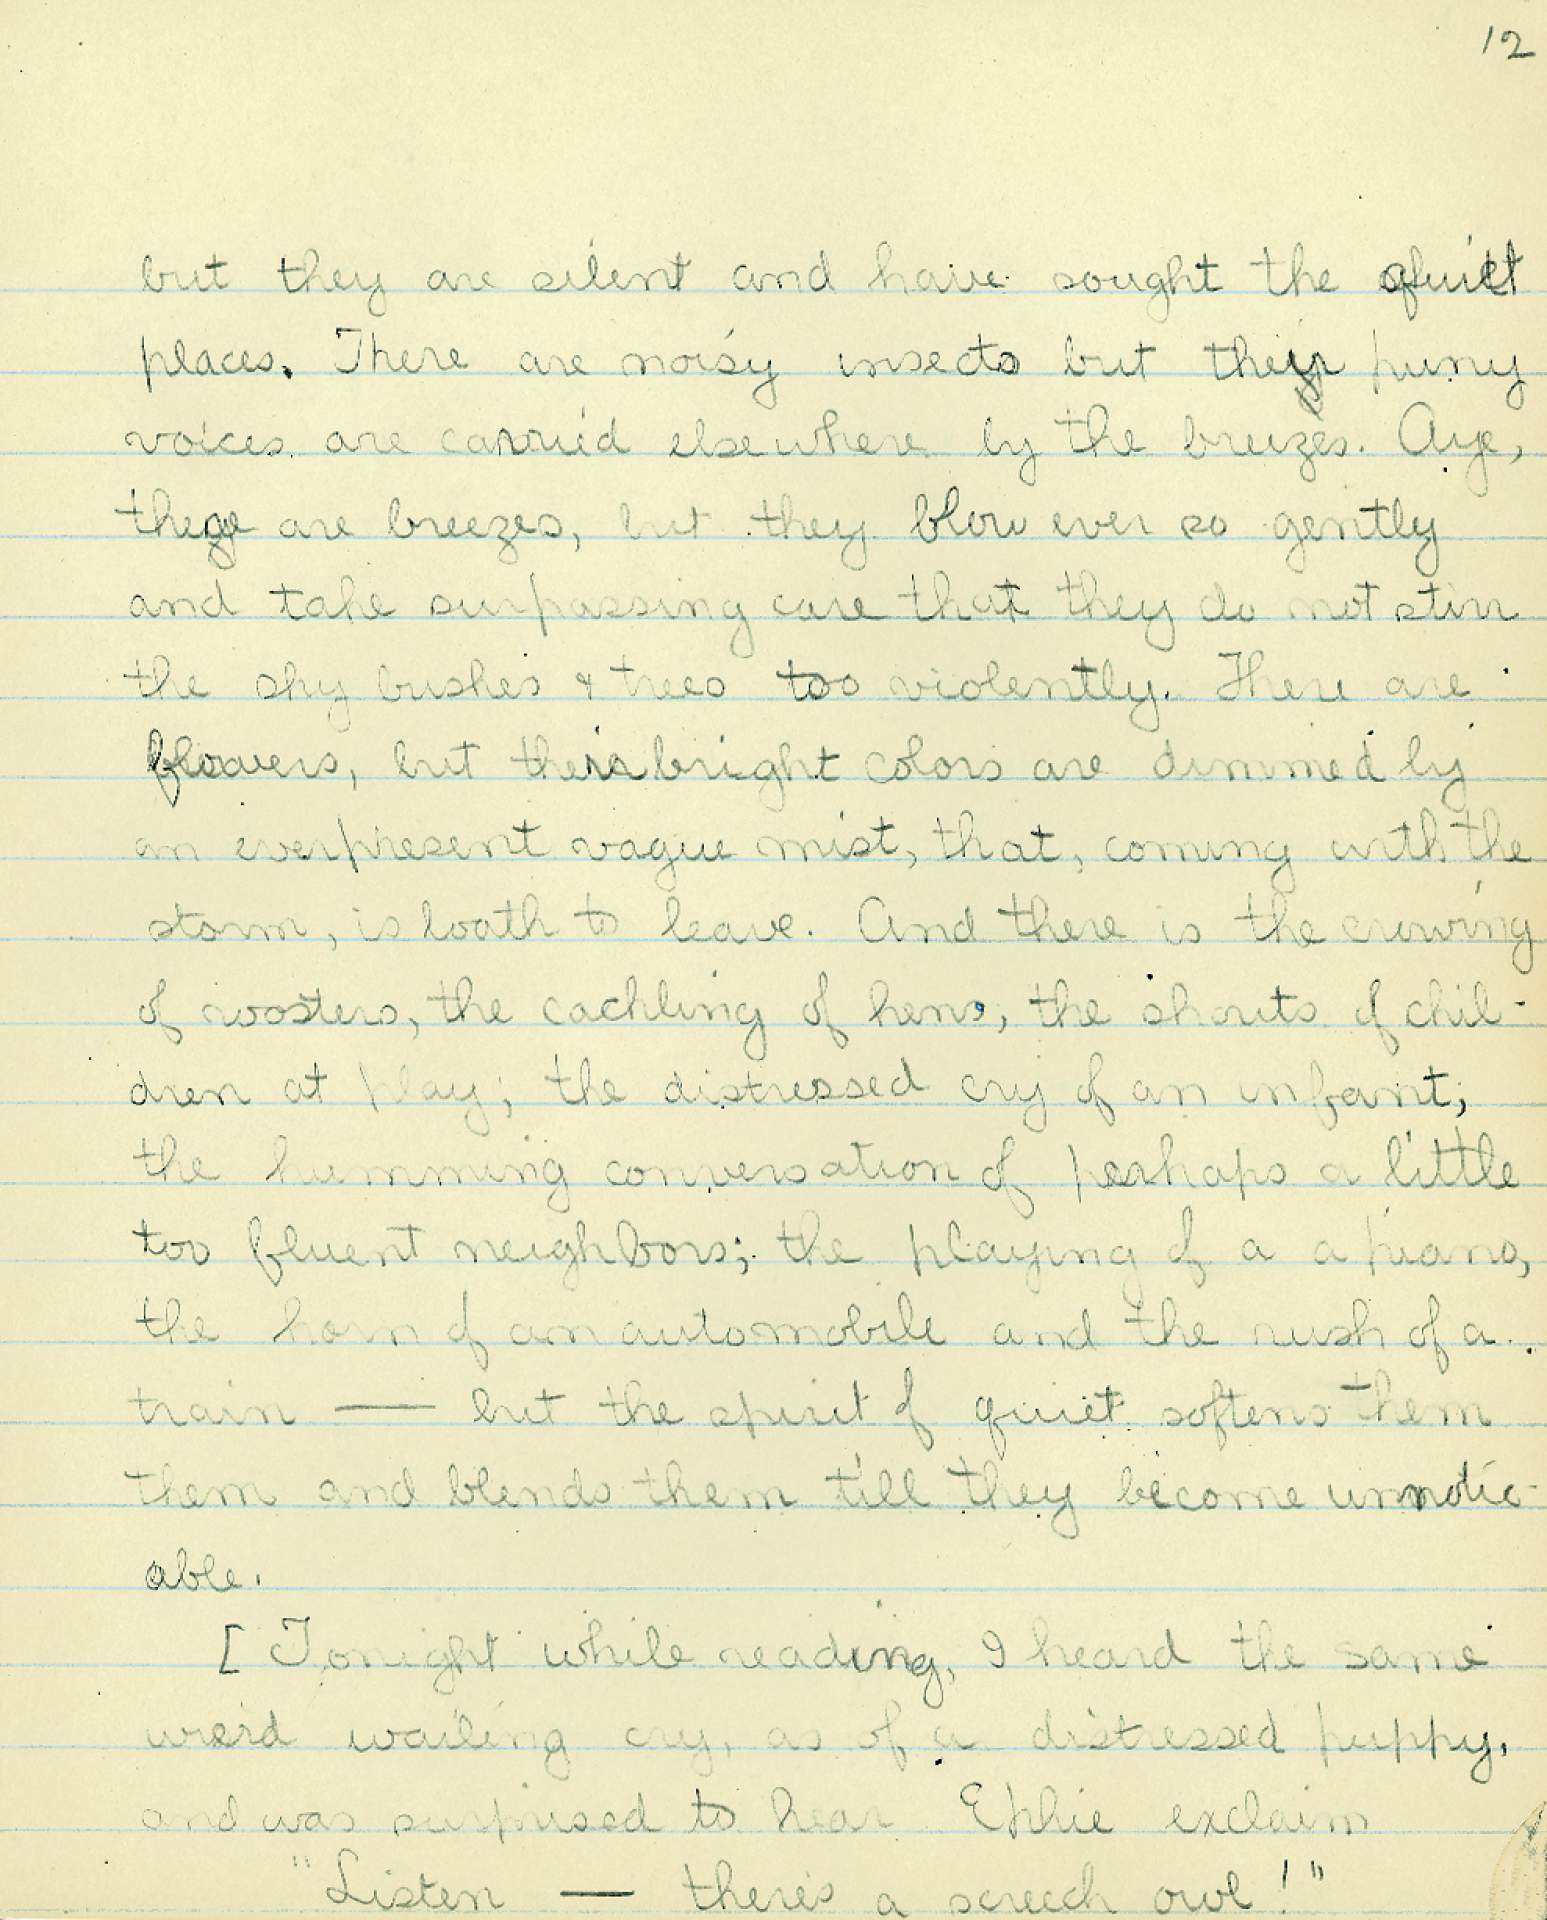 12
but they are silent and have sought the quiet
places. There are noisy insects but their puny
voices are carried elsewhere by the breezes. Aye,
these are breezes, but they blow ever so gently
and take surpassing care that they do not stirr
the shy bushes & trees too violently. There are
flowers, but their bright colors are dimmed by
an everpresent vague mist, that, coming with the
storm, is loath to leave. And there is the crowing
of roosters, the cackling of hens, the shouts of chil-
dren at play; the distressed cry of an infant;
the humming conversation of perhaps a little
too fluent neighbors; the playing of a a piano,
the horn of an automobile and the rush of a
train — but the spirit of quiet softens them
them and blends them till they become unnotic-
able.
[ Tonight while reading, I heard the same
weird wailing cry, as of a distressed puppy,
and was surprised to hear Ephie exclaim
"Listen — there's a screech owl!"